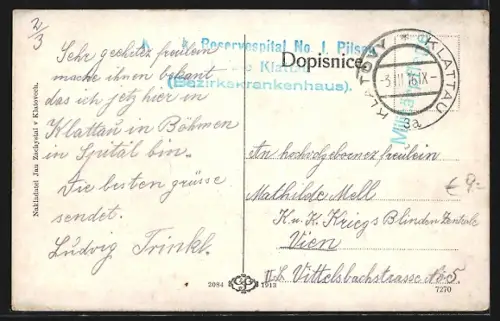 2/3
k. k. Reservespital No. 1, Pilsen
Klattau
(Bezirkskrankenhaus).
Dopisnice
KLATOVY * KLATTAU
-3 III 16 IX-
3a
Sehr geehrtes freilein
mache ihnen bekant
das ich jetz hier in
Klattau in Böhmen
in Spital bin.
Die besten grüsse
sendet.
Ludvig Trinkl.
An hochvohlgeborenez freilein
Mathilde Mell
K. u. K. Kriegs Blinden Zentrale
Vien
II. Vittelsbachstrasse No 5.
€ 9.-
Nakladatel Jan Zochystal v Klatovech.
2084 1913
7270